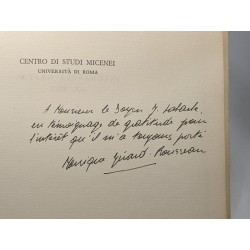 CENTRO DI STUDI MICENEI
UNIVERSITÀ DI ROMA
A Monsieur le Doyen J. Labarbe
en témoignage de gratitude pour
l'intérêt qu'il m'a toujours porté
Monique Gérard-Rousseau